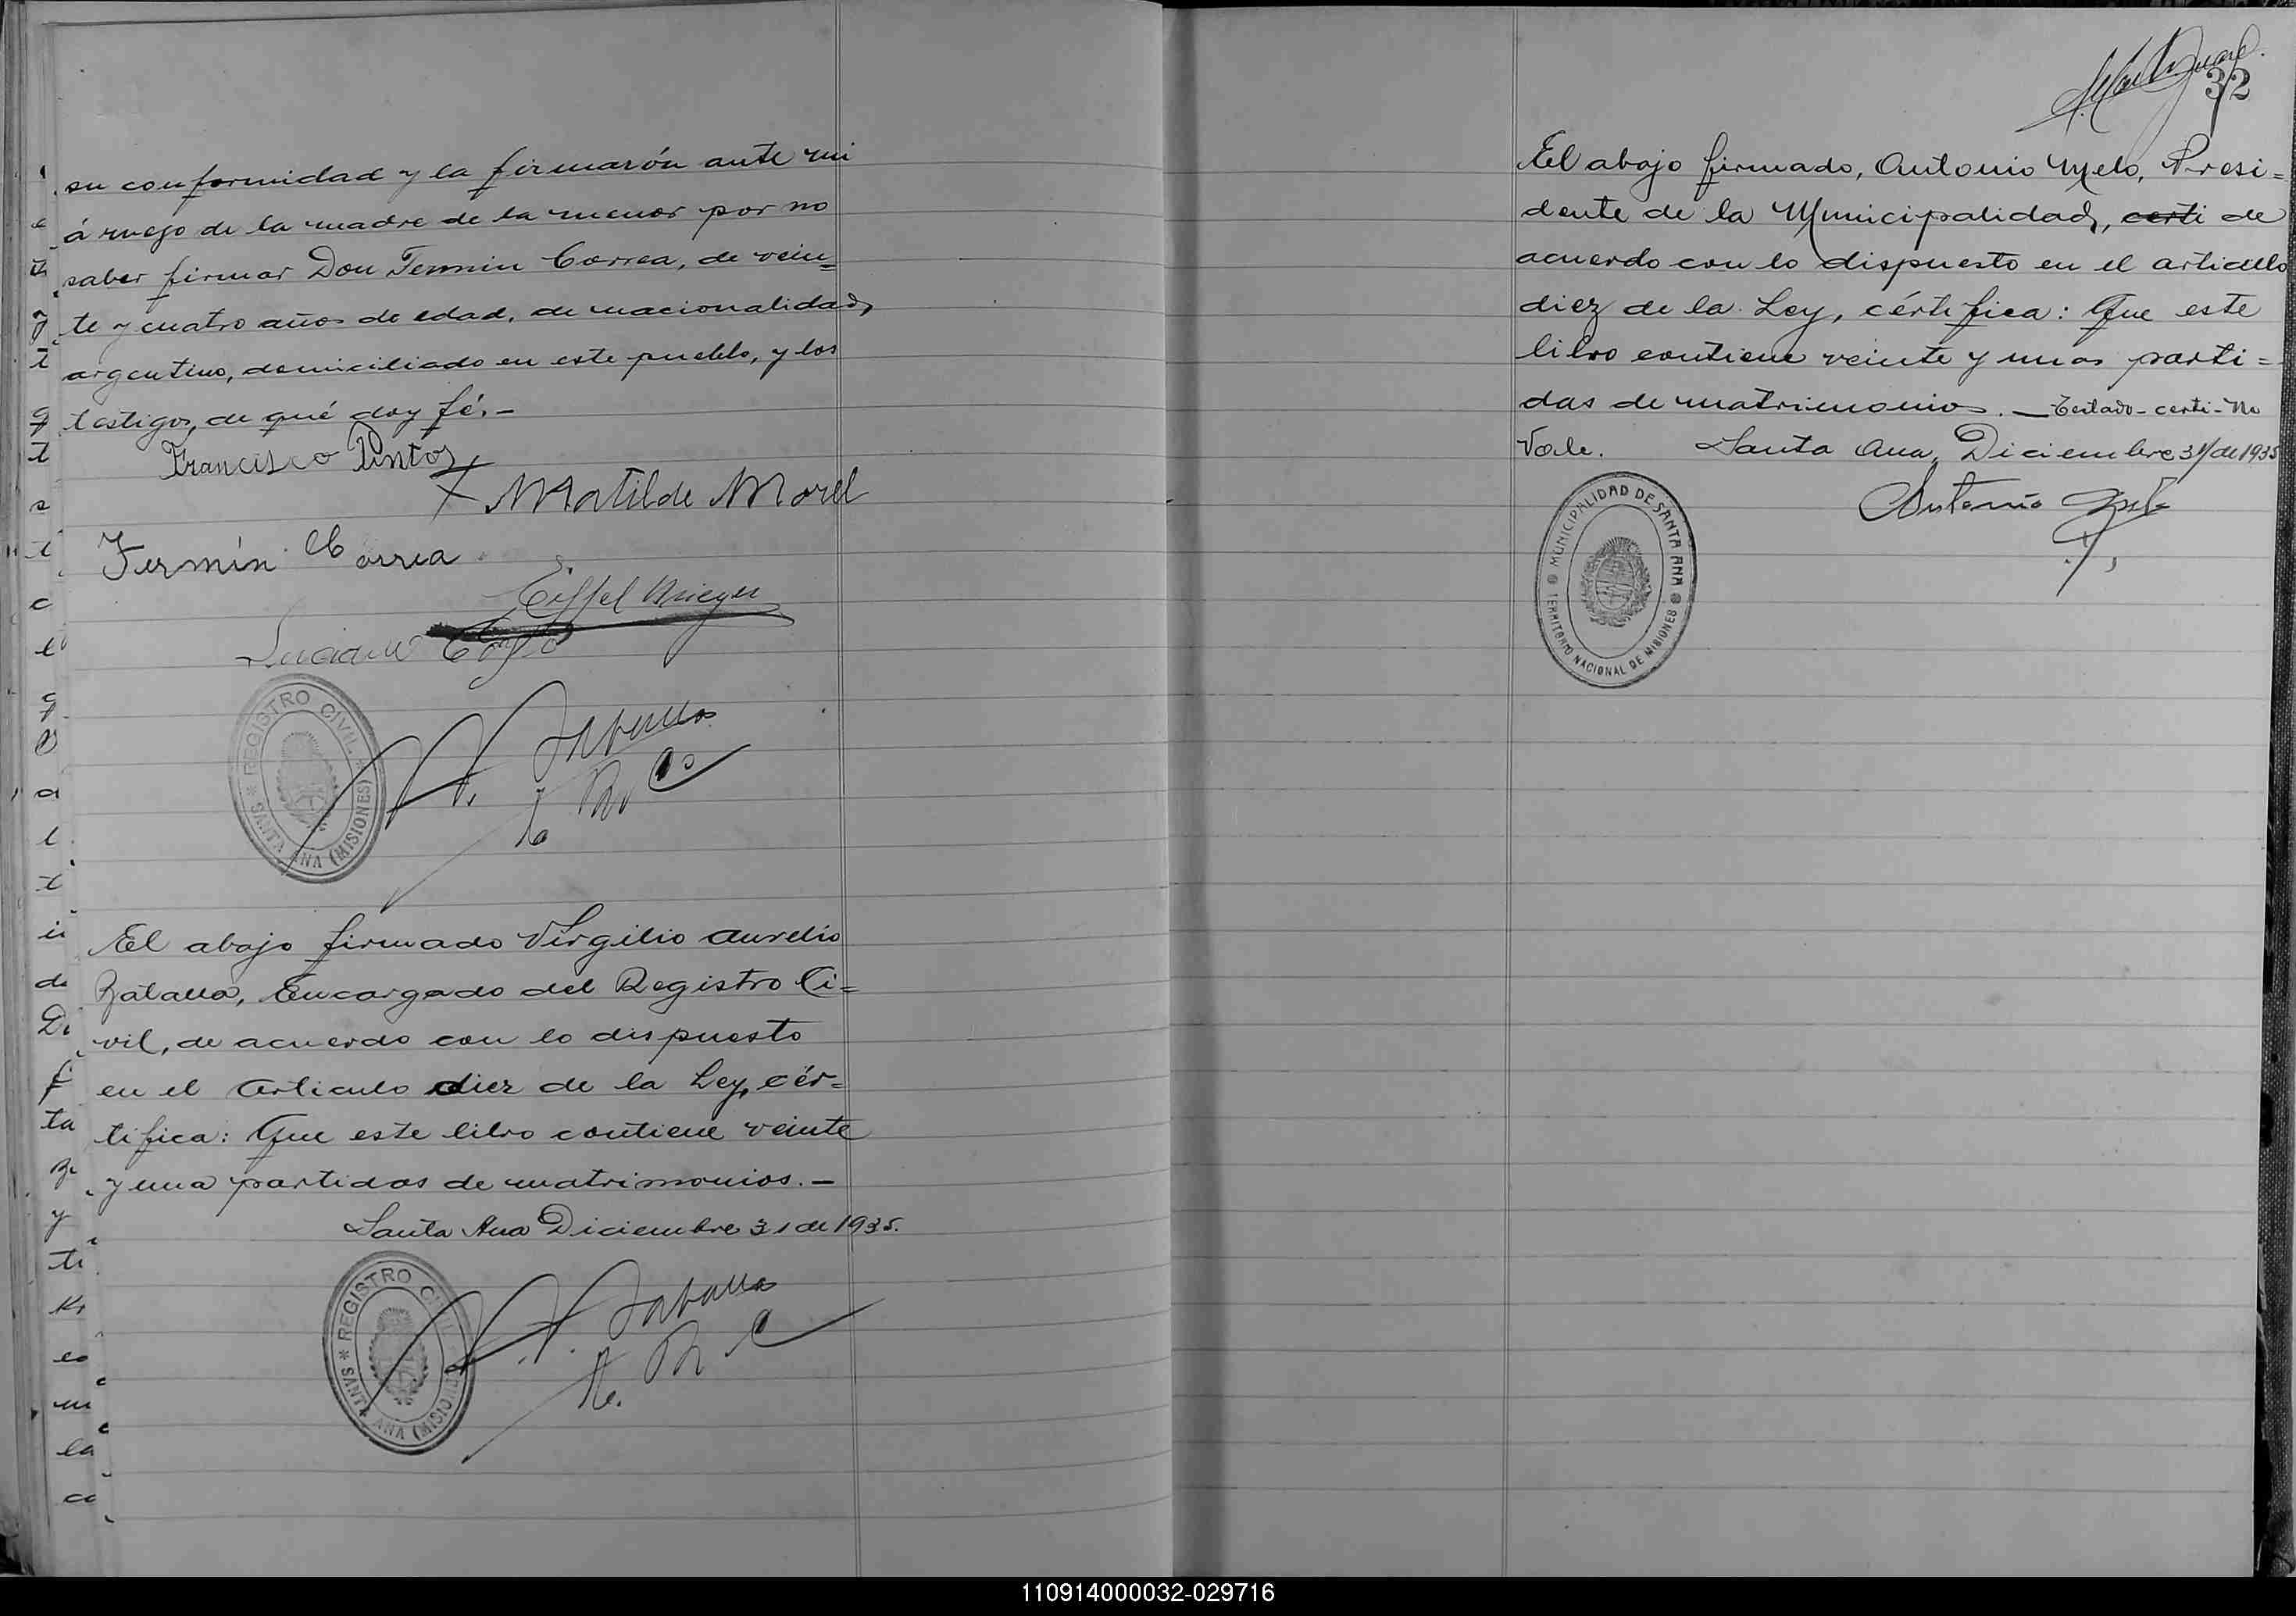 su conformidad y la firmarón ante mi
á ruego de la madre de la menor por no
saber firmar Don Fermin Correa, de vein=
te y cuatro años de edad, de nacionalidad,
argentino, domiciliado en este pueblo, y los
testigos, de qué doy fé.-
Francisco Pintos
Matilde Morel
Fermín Correa
Eiffel Krieger
Luciano
REGISTRO CIVIL
SANTA ANA (MISIONES)
El abajo firmado Virgilio Aurelio
Zaballa, Encargado del Registro Ci=
vil, de acuerdo con lo dispuesto
en el Articulo diez de la Ley, cér=
tifica: Que este libro contiene veinte
y una partidas de matrimonios.-
Santa Ana Diciembre 31 de 1935.
REGISTRO CIVIL
SANTA ANA (MISIONES)
32
El abajo firmado, Antonio Melo, Presi=
dente de la Municipalidad, certi de
acuerdo con lo dispuesto en el articulo
diez de la Ley, cértifica: Que este
libro contiene veinte y unas parti=
das de matrimonios. — Testado - certi - No
Vale. Santa Ana, Diciembre 31/de 1935
Antonio
MUNICIPALIDAD DE SANTA ANA
TERRITORIO NACIONAL DE MISIONES
110914000032-029716